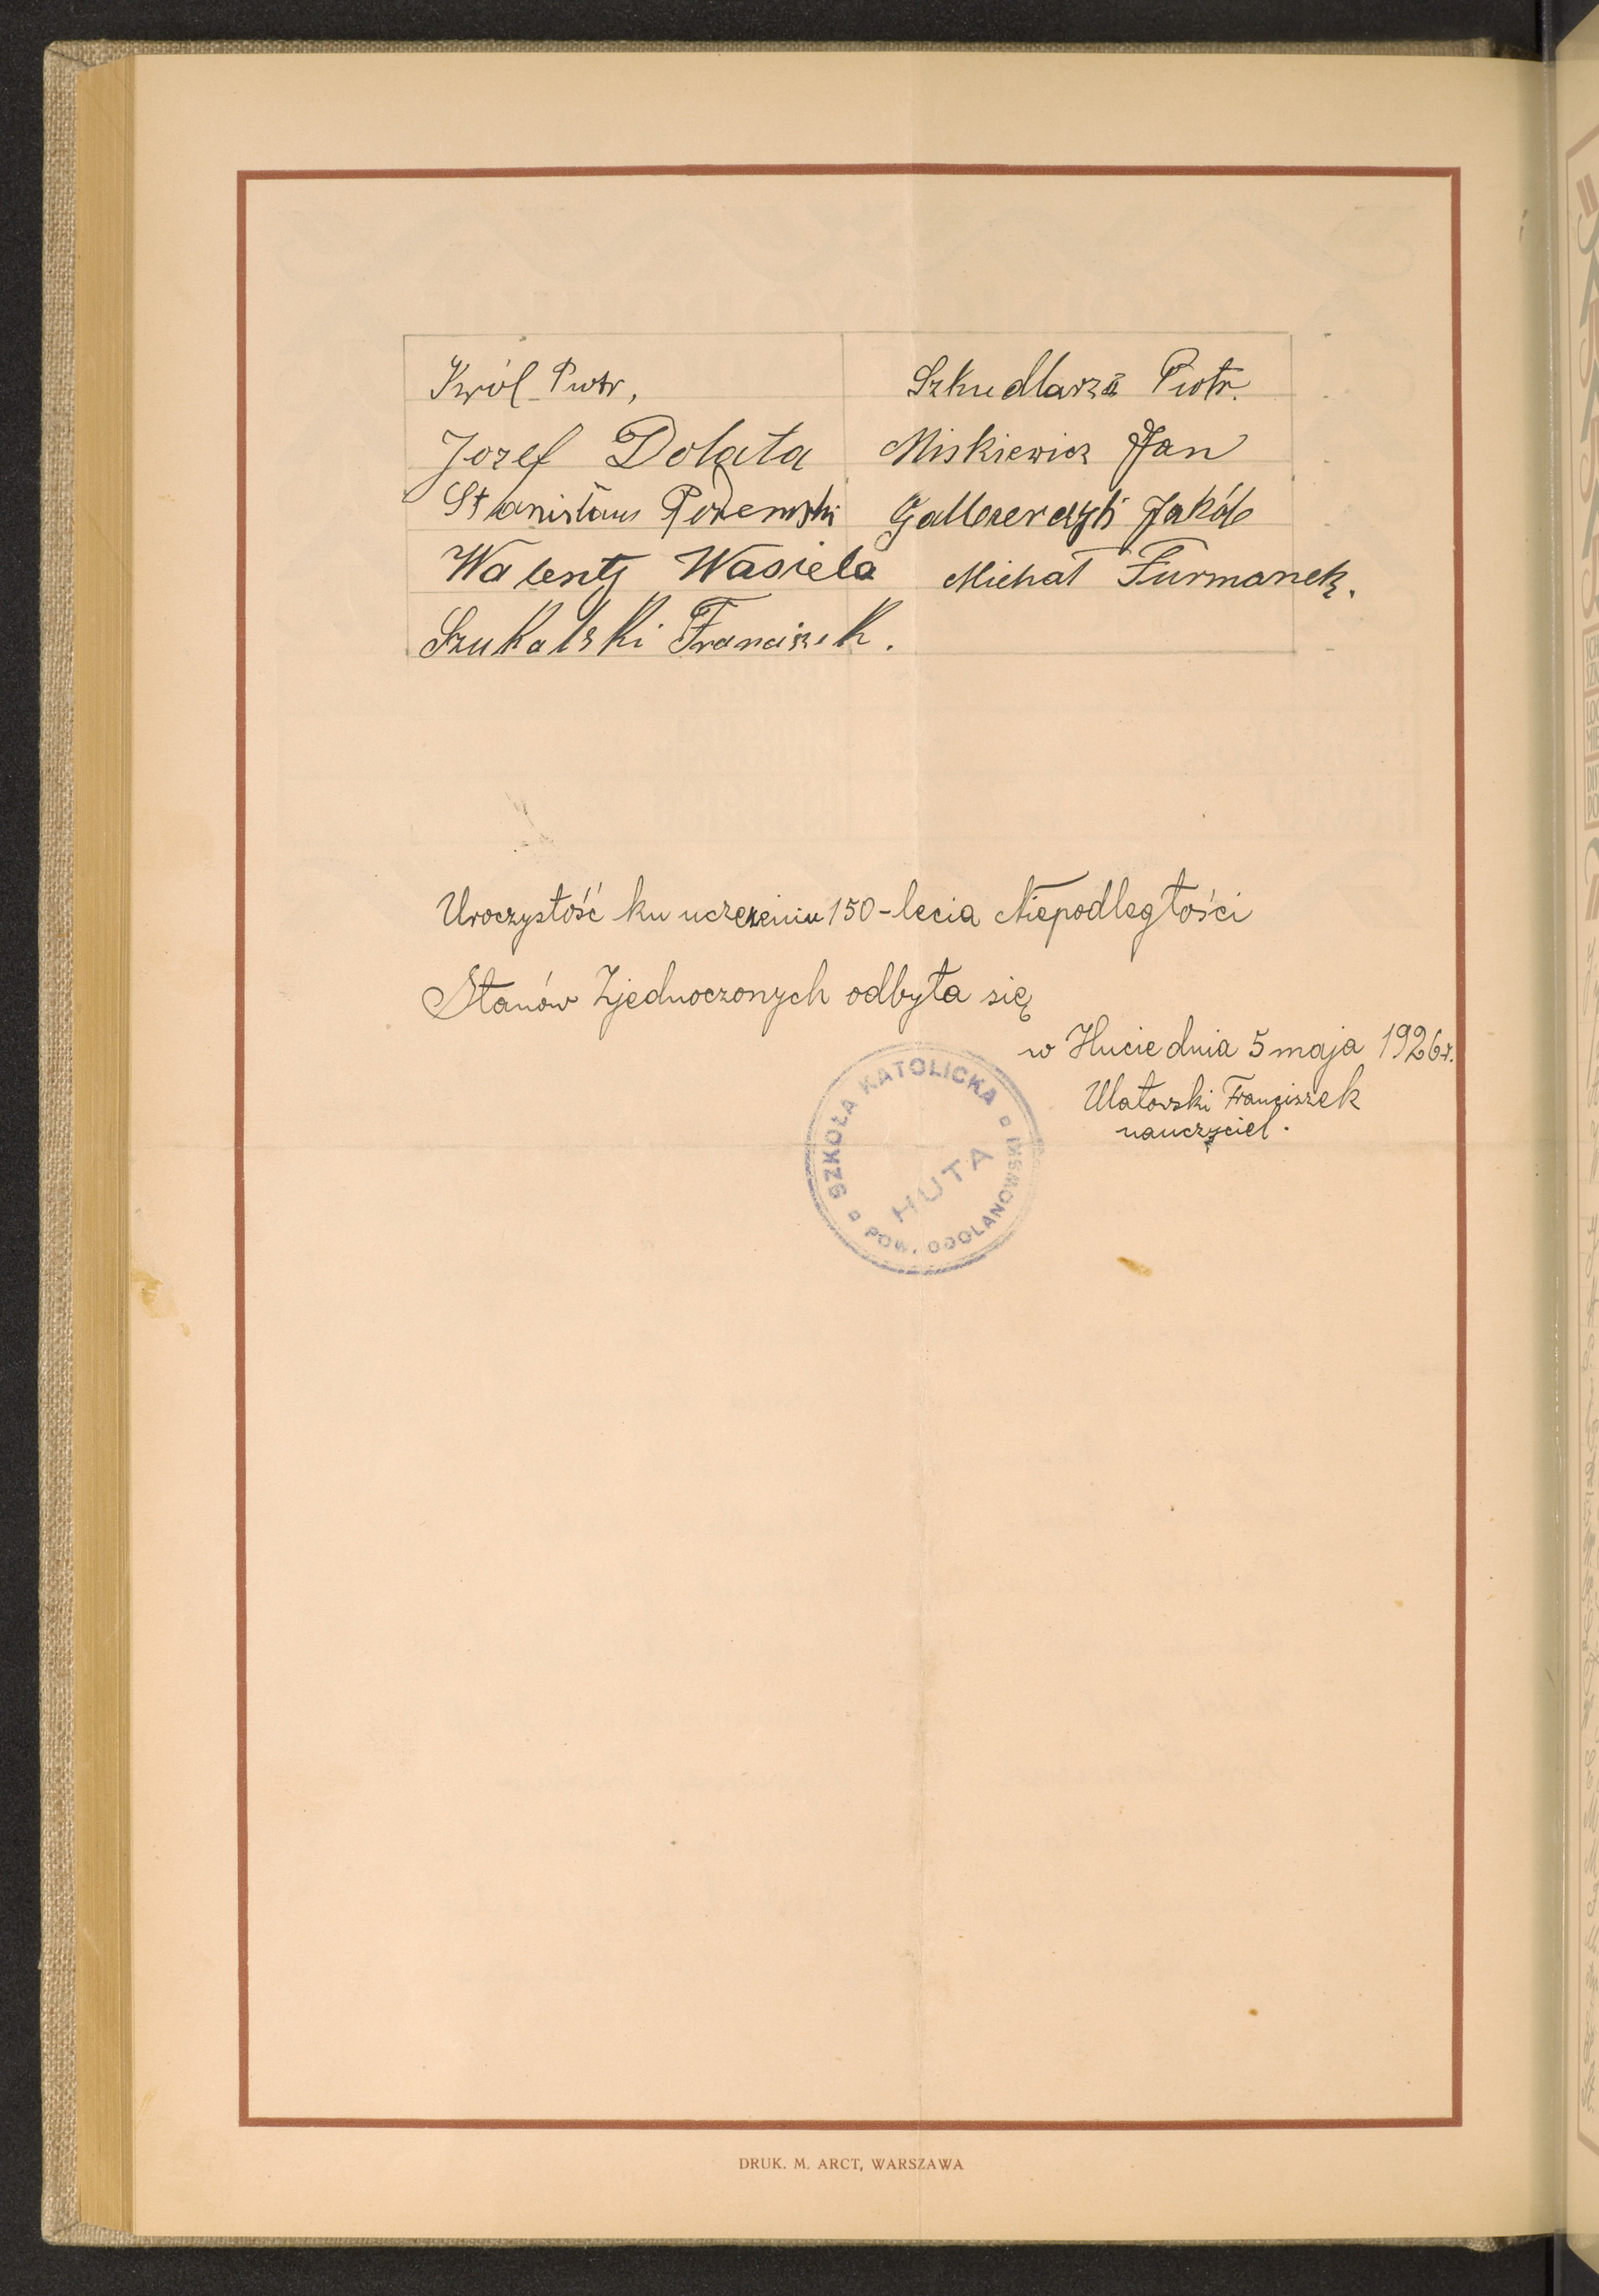 Król Piotr,
Jozef Dolata
Stanisław
Walenty Wasiela
Szukalski Franciszek.
Szkudlarz Piotr.
Miskiewicz Jan
Jakób
Michał Furmanek.
Uroczystość ku uczczeniu 150-lecia Niepodległości
Stanów Zjednoczonych odbyła się
w Hucie dnia 5 maja 1926 r.
Ulatowski Franciszek
nauczyciel.
SZKOŁA KATOLICKA
HUTA
POW. ODOLANOWSKI
DRUK. M. ARCT, WARSZAWA